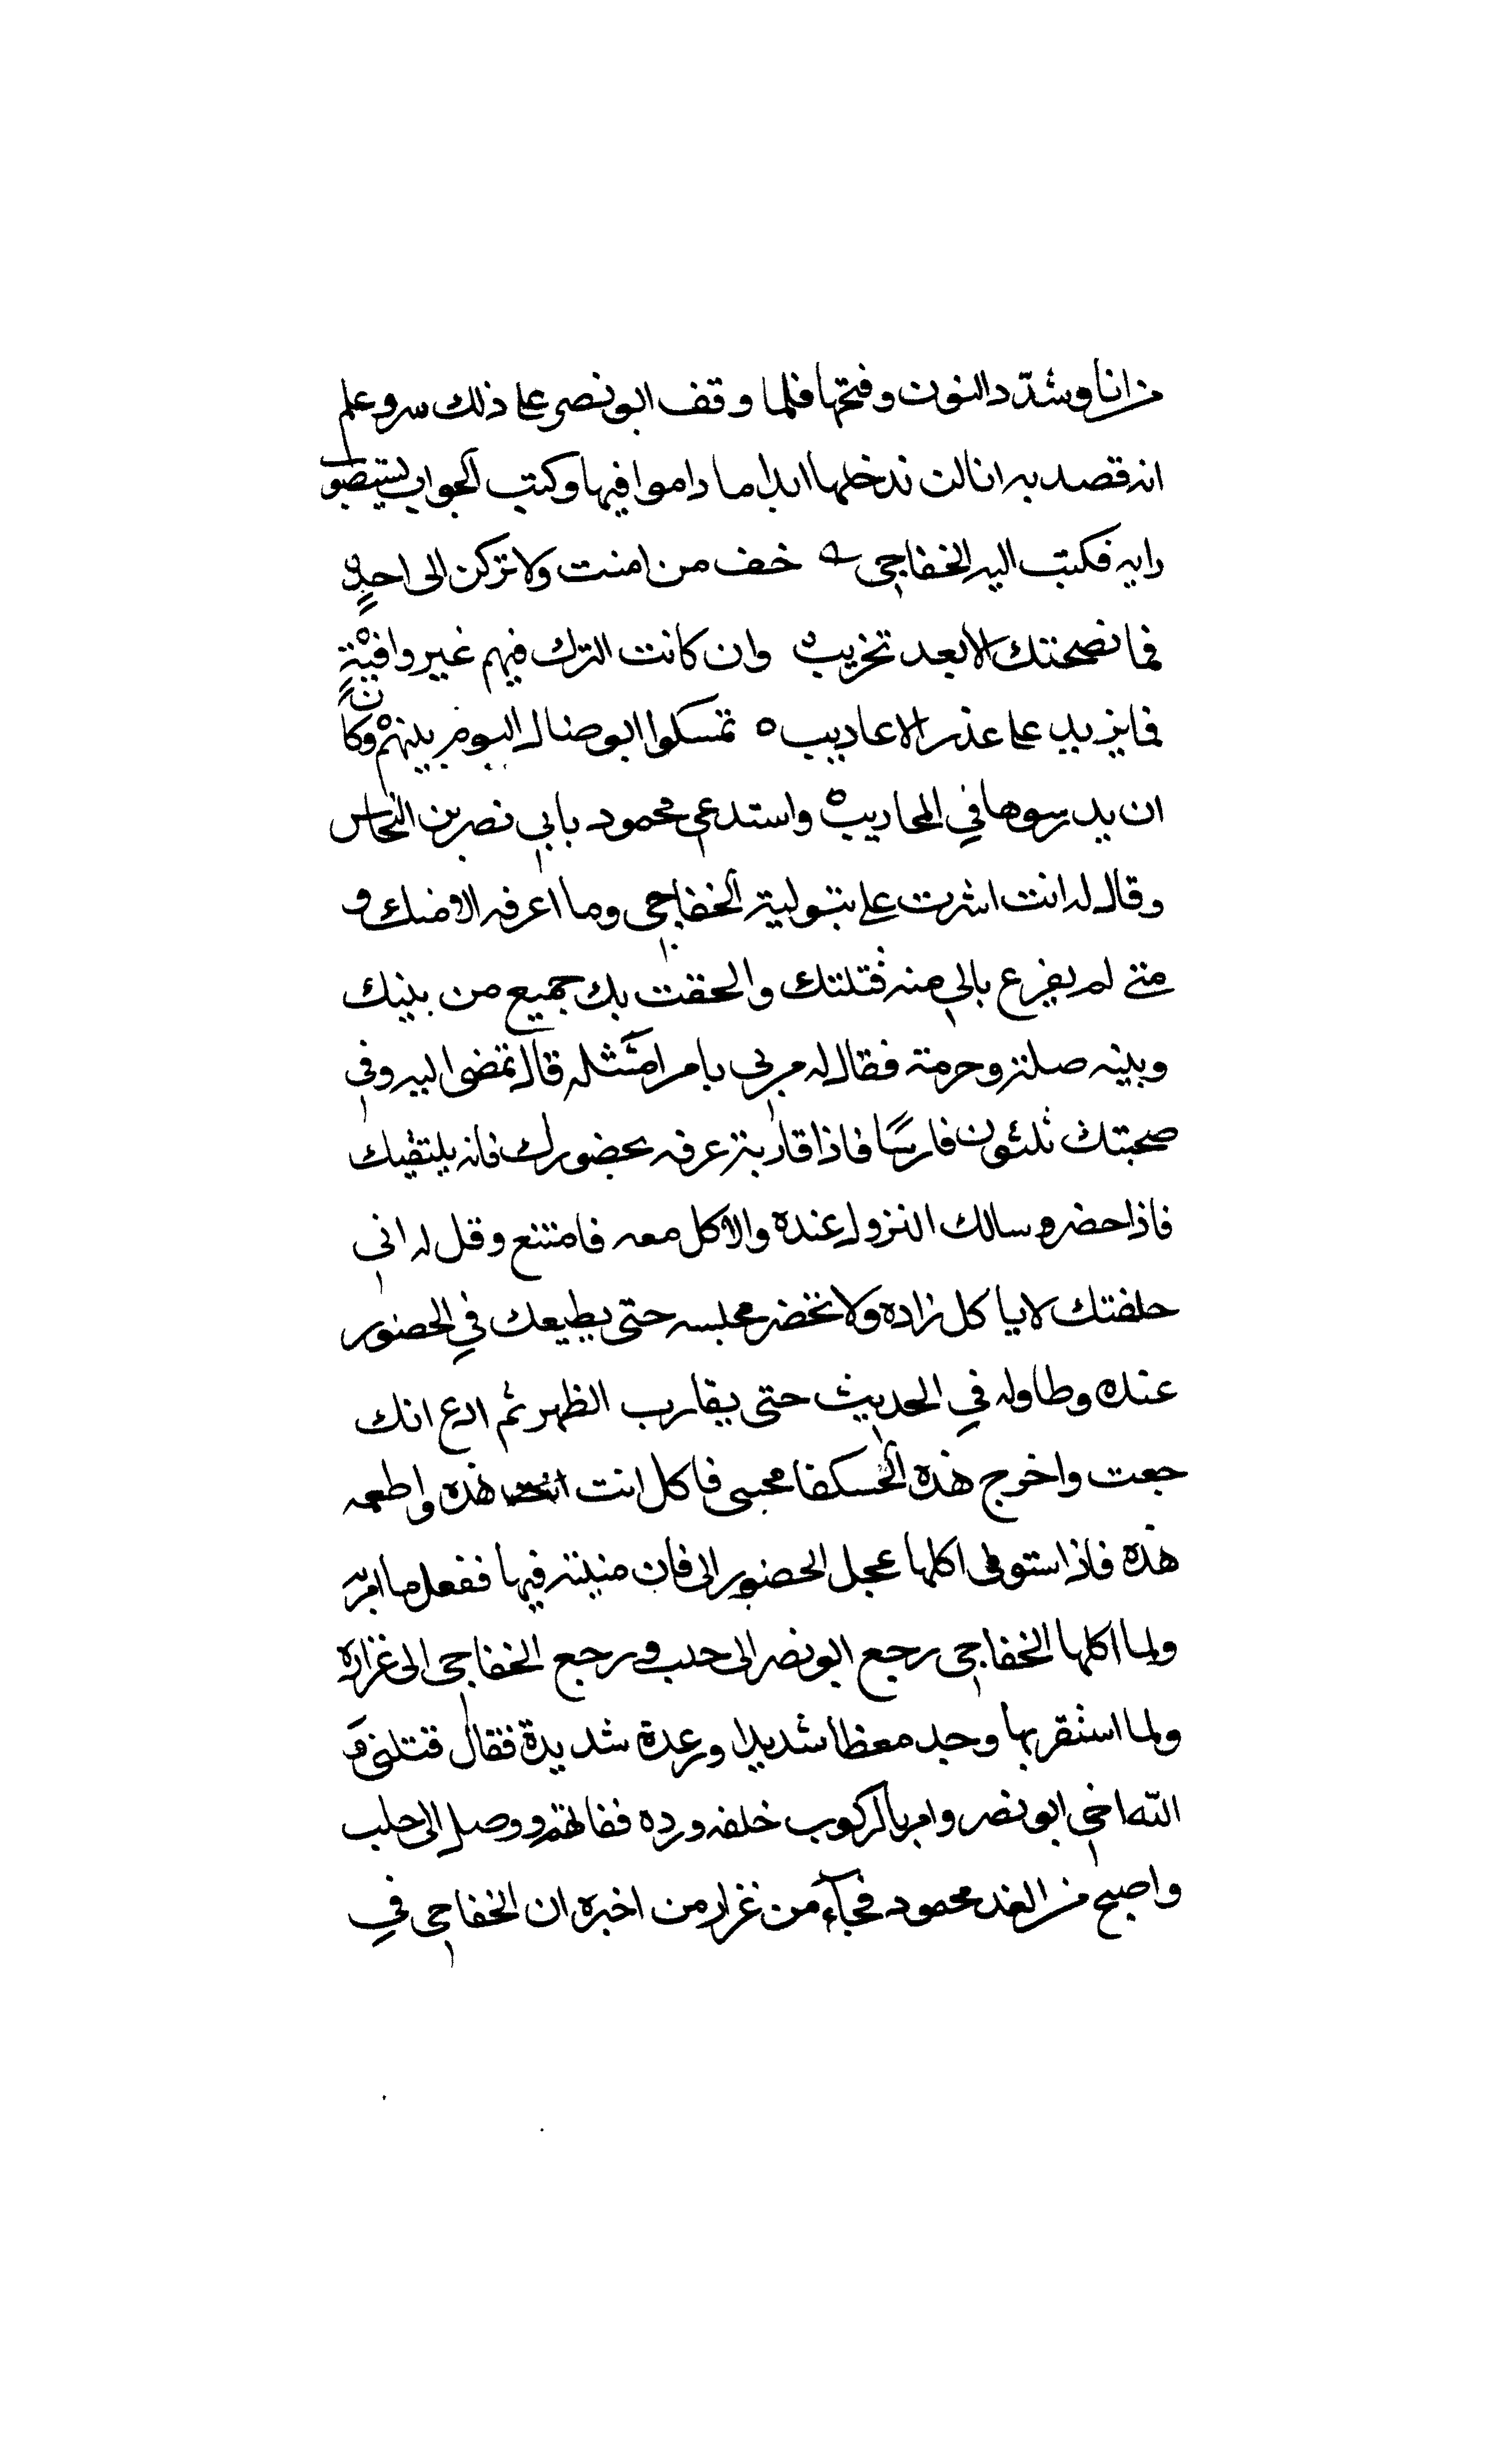 من انا وشدد النون وفتحها فلما وقف ابو نصر على ذلك سر وعلم
انه قصد به انا لن ندخلها ابدا ما داموا فيها وكتب الجواب يستصوب
رايه فكتب اليه الخفاجي خف من امنت ولا تركن الى احدٍ
فما نصحتك الا بعد تخريب وان كانت الترك فيهم غير وافيةٍ
فما يزيد على عذر الاعاريب تمسكوا بينهم وكان
ان يدرسوها في المحاريب واستدعى محمود بابي نصر بن النحاس
وقال له انت اشرت علي بتولية الخفاجي وما اعرفه الا منك و
متى لم يفرغ بالي منه قتلتك والحقت بك جميع من بينك
وبينه صلة وحرمة فقال له مرني بامر امتثله قال تمضى اليه وفي
صحبتك ثلثون فارسًا فاذا قاربته عرفه بحضورك فانه يلتقيك
فاذا حضر وسالك النزول عنده والاكل معه فامتنع وقل له اني
حلفتك لا ياكل زاده ولا تحضر مجلسه حتى يطيعك في الحضور
عنده وطاوله في الحديث حتى يقارب الظهر ثم ادع انك
جعت واخرج هذه فاكل انت هذه واطعمه
هذه فاذا استوفى اكلها عجل الحضور الى فان منيته فيها ففعل ما امر به
ولما اكلها الخفاجي رجع ابو نصر الى حلب ورجع الخفاجي الى غزاره
ولما استقر بها وجد مغظا شديدا ورعدة شديدة فقال قتلنى و
الله اخي ابو نصر وامر بالركوب خلفه ورده ففاتهم ووصل الى حلب
واصبح من الغد محمود فجاء من غزار من اخبره ان الخفاجي في